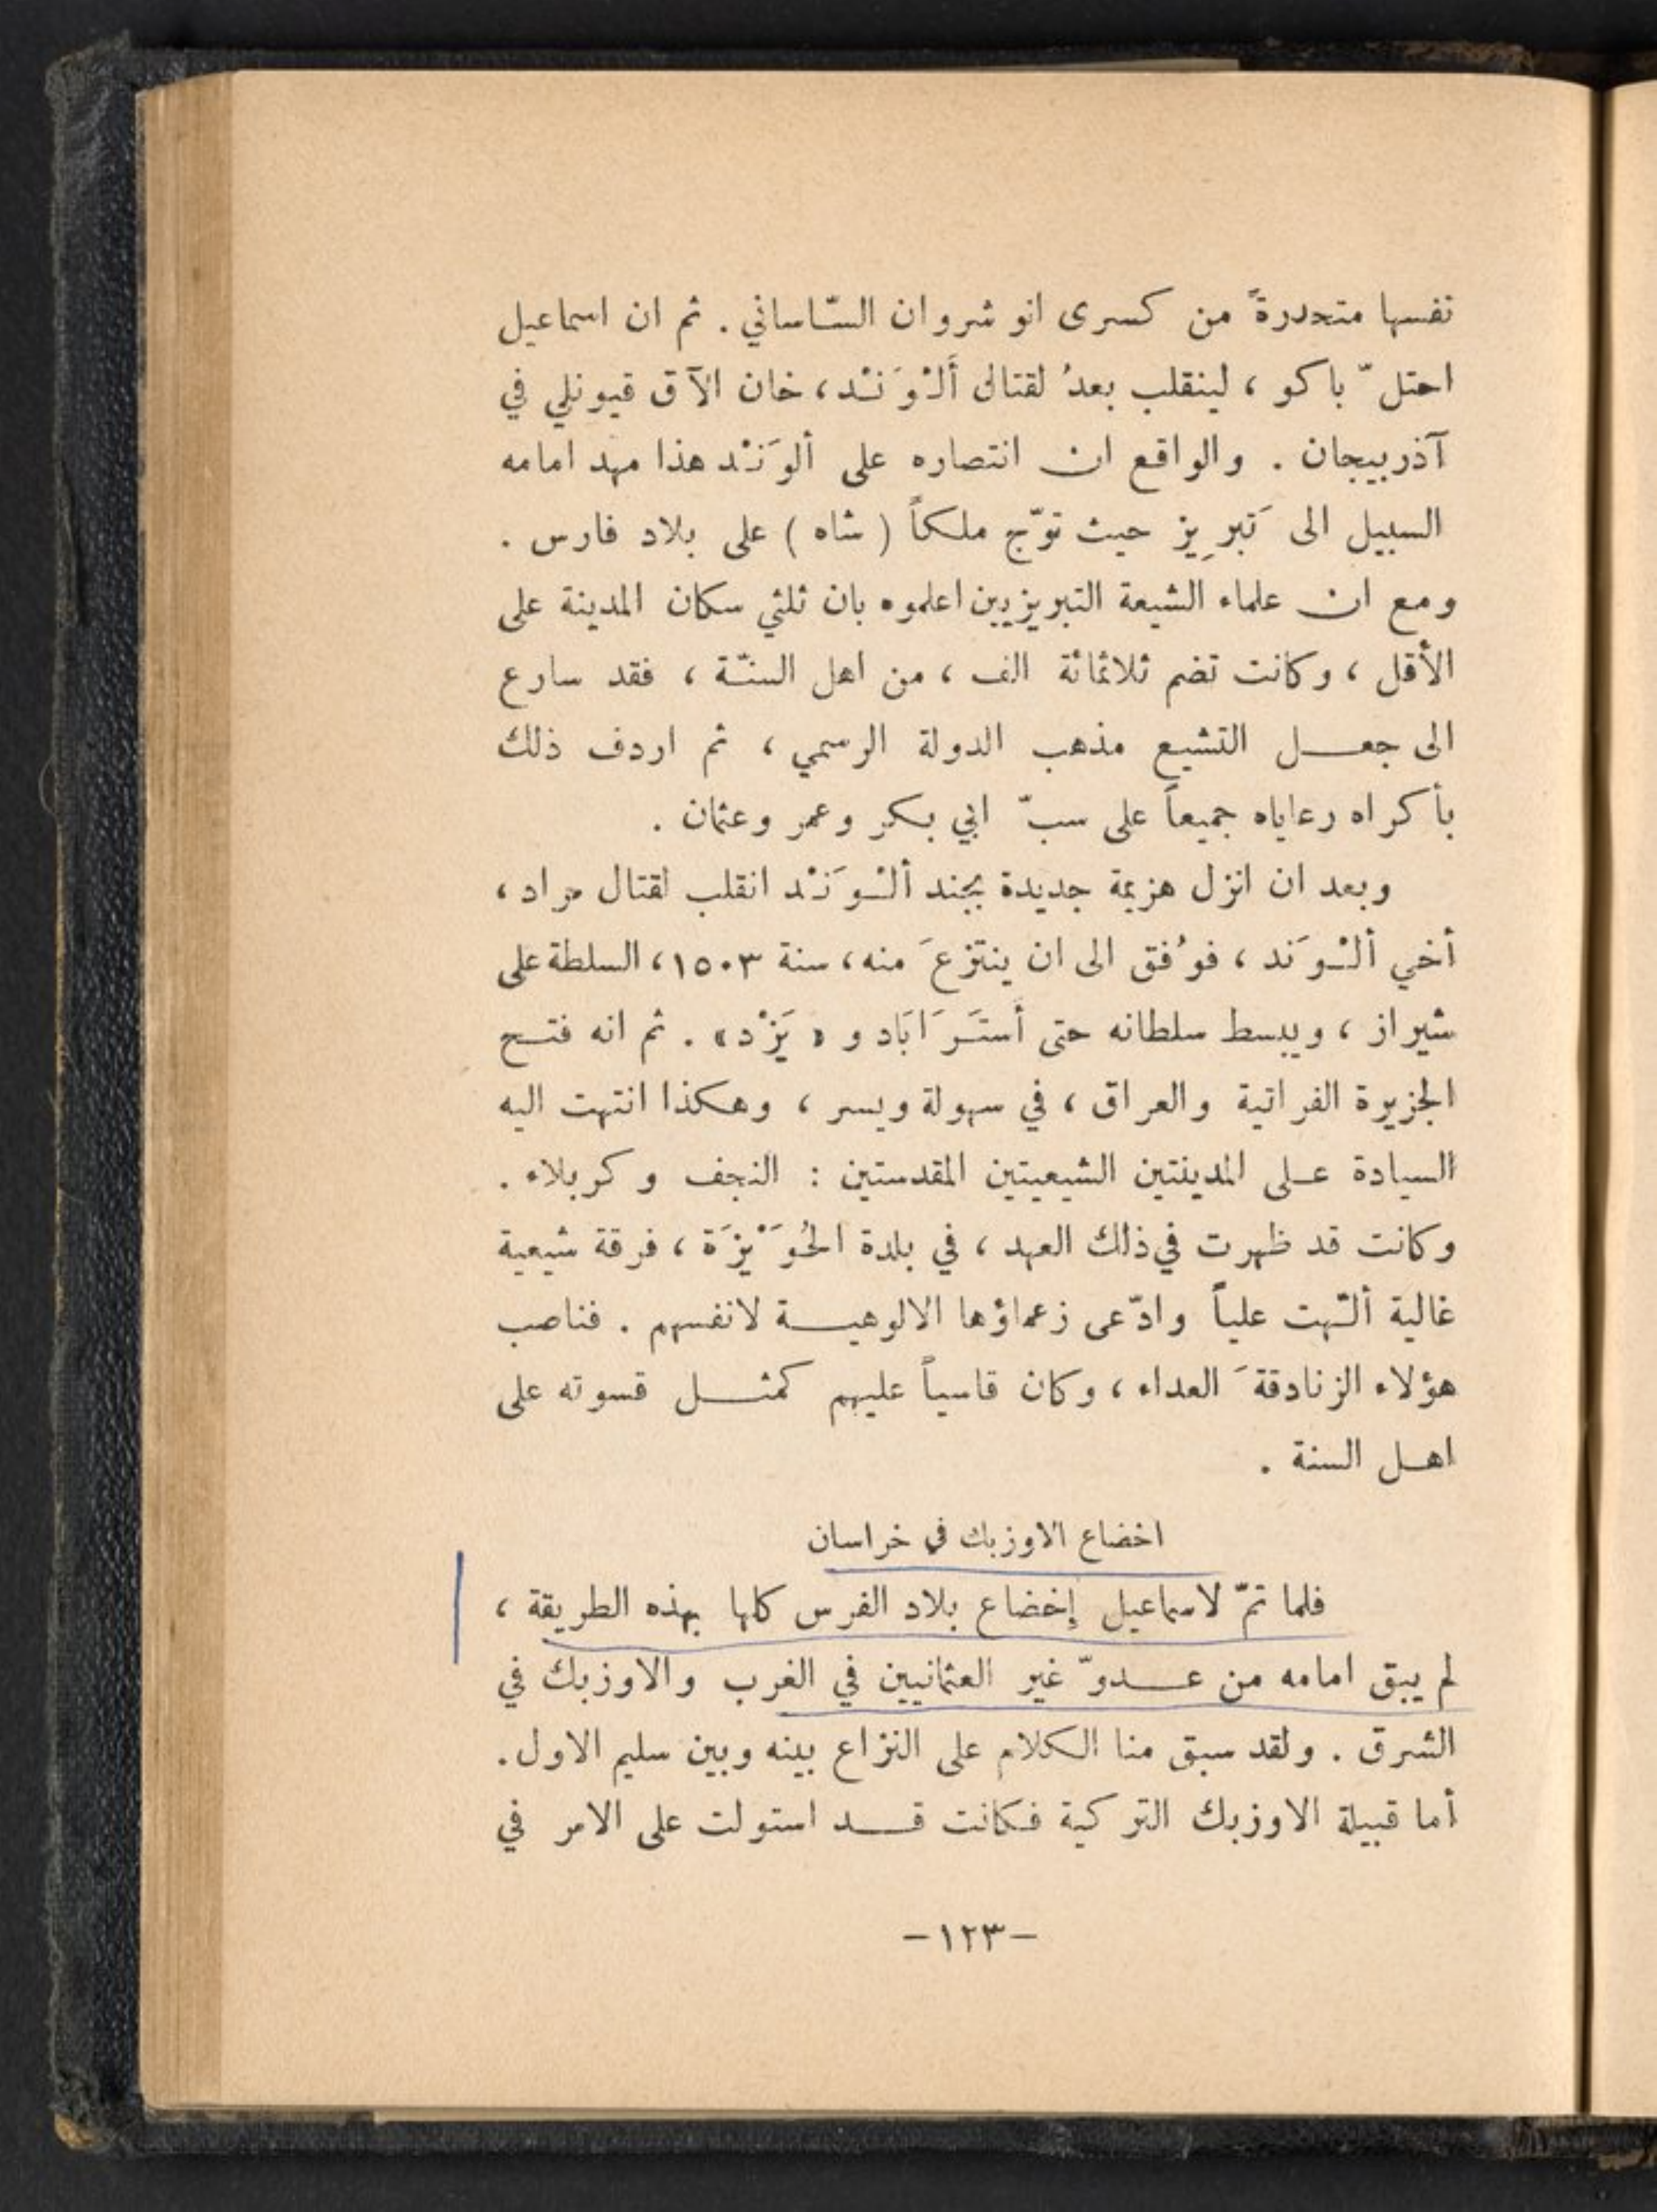 نفسها متحدرةً من كسرى انو شروان السّاساني . ثم ان اسماعيل
احتلّ باكو ، لينقلب بعدُ لقتال أَلْوَنْد ، خان الآق قيونلي في
آذربيجان . والواقع ان انتصاره على ألوَنْد هذا مهد امامه
السبيل الى تَبرِيز حيث توّج ملكاً ( شاه ) على بلاد فارس .
ومع ان علماء الشيعة التبريزيين اعلموه بان ثلثي سكان المدينة على
الأقل ، وكانت تضم ثلاثمائة الف ، من اهل السنّة ، فقد سارع
الى جعــل التشيع مذهب الدولة الرسمي ، ثم اردف ذلك
بأكراه رعاياه جميعاً على سبّ ابي بكر وعمر وعثمان .
وبعد ان انزل هزيمة جديدة بجند ألْوَنْد انقلب لقتال مراد ،
أخي ألْوَند ، فوُفق الى ان ينتزعَ منه ، سنة ١٥٠٣ ، السلطة على
شيراز ، ويبسط سلطانه حتى أَستَرَابَاد و « يَزْد » . ثم انه فتــح
الجزيرة الفراتية والعراق ، في سهولة ويسر ، وهكذا انتهت اليه
السيادة عــلى المدينتين الشيعيتين المقدستين : النجف وكربلاء .
وكانت قد ظهرت في ذلك العهد ، في بلدة الحُوَيْزَة ، فرقة شيعية
غالية ألّهت علياً وادّعى زعماؤها الالوهيــة لانفسهم . فناصب
هؤلاء الزنادقةَ العداء ، وكان قاسياً عليهم كمثــل قسوته على
اهــل السنة .
اخضاع الاوزبك في خراسان
فلما تمّ لاسماعيل إخضاع بلاد الفرس كلها بهذه الطريقة ،
لم يبق امامه من عــدوّ غير العثمانيين في الغرب والاوزبك في
الشرق . ولقد سبق منا الكلام على النزاع بينه وبين سليم الاول .
أما قبيلة الاوزبك التركية فكانت قــد استولت على الامر في
–١٢٣–